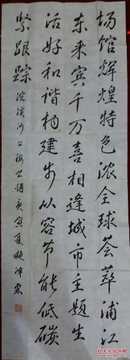 场馆辉煌特色浓全球荟萃浦江
东来宾千万喜相逢城市主题生
活好和谐构建步从容节能低碳
紧跟踪
浣溪沙